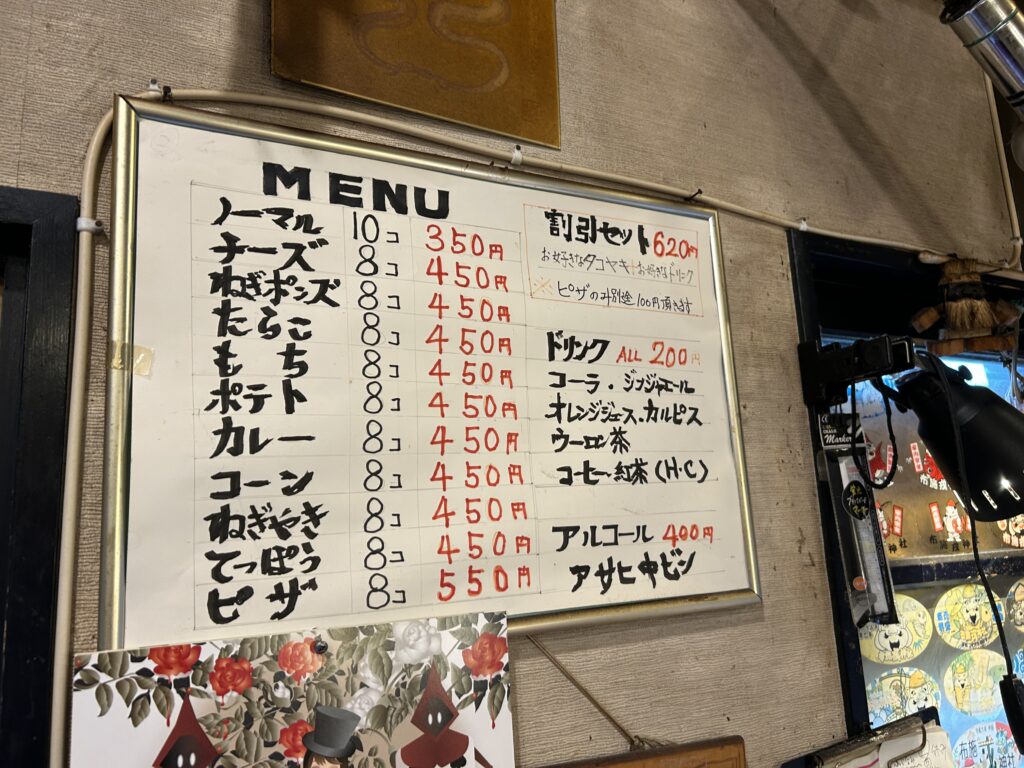 MENU
ノーマル 10コ 350円
チーズ 8コ 450円
ねぎポンズ 8コ 450円
たらこ 8コ 450円
もち 8コ 450円
ポテト 8コ 450円
カレー 8コ 450円
コーン 8コ 450円
ねぎやき 8コ 450円
てっぽう 8コ 450円
ピザ 8コ 550円
割引セット 620円
お好きなタコヤキ+お好きなドリンク
※ピザのみ別途100円頂きます
ドリンク ALL 200円
コーラ・ジンジャエール
オレンジジュース、カルピス
ウーロン茶
コーヒー 紅茶(H・C)
アルコール 400円
アサヒ中ビン
Marker